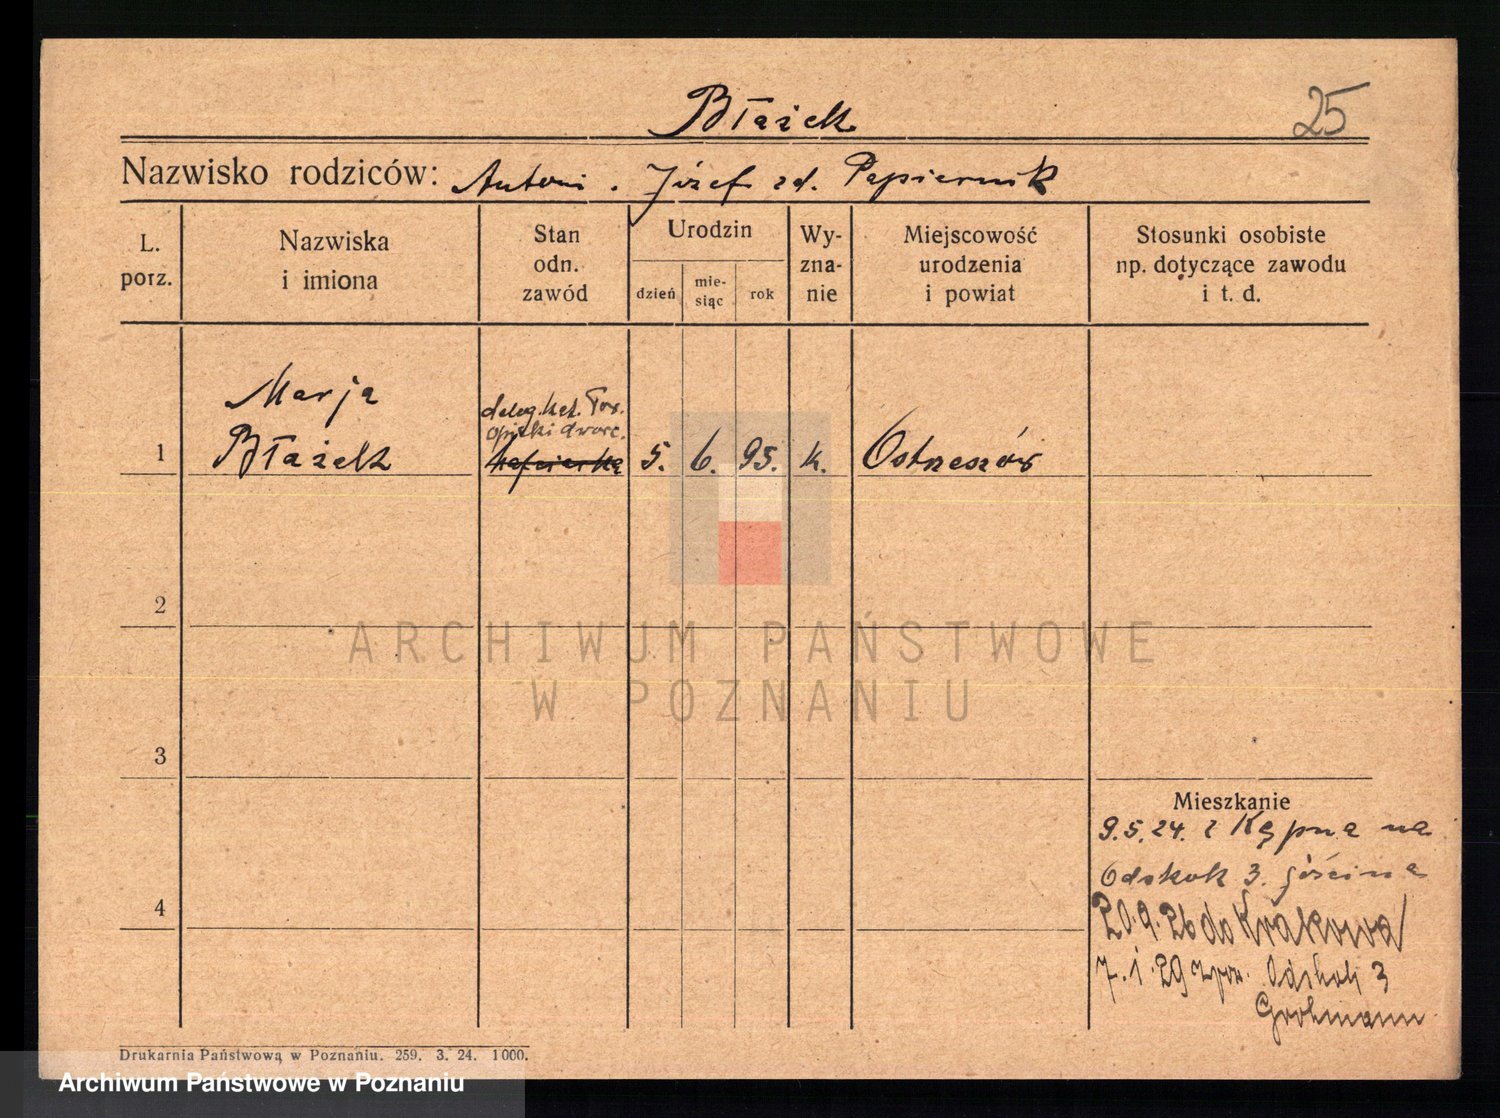 Błażek
25
Nazwisko rodziców: Antoni . Józef zd. Papiernik
L. porz.
Nazwiska i imiona
Stan odn. zawód
Urodzin
dzień
mie-siąc
rok
Wy-zna-nie
Miejscowość urodzenia i powiat
Stosunki osobiste np. dotyczące zawodu i t. d.
Marja
deleg. kat. Tow.
opieki dworc.
1 Błażek hafciarka 5. 6. 95. k. Ostrzeszów
2
ARCHIWUM PAŃSTWOWE
W POZNANIU
3
Mieszkanie
9.5.24. z Kępna na
Odskok 3. gościna
4
20.9.26 do Krakowa
7.1.29 zpow. Odskok 3
Grohmann
Drukarnia Państwową w Poznaniu. 259. 3. 24. 1000.
Archiwum Państwowe w Poznaniu